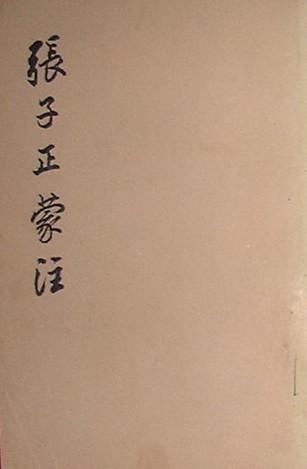 張子正蒙注